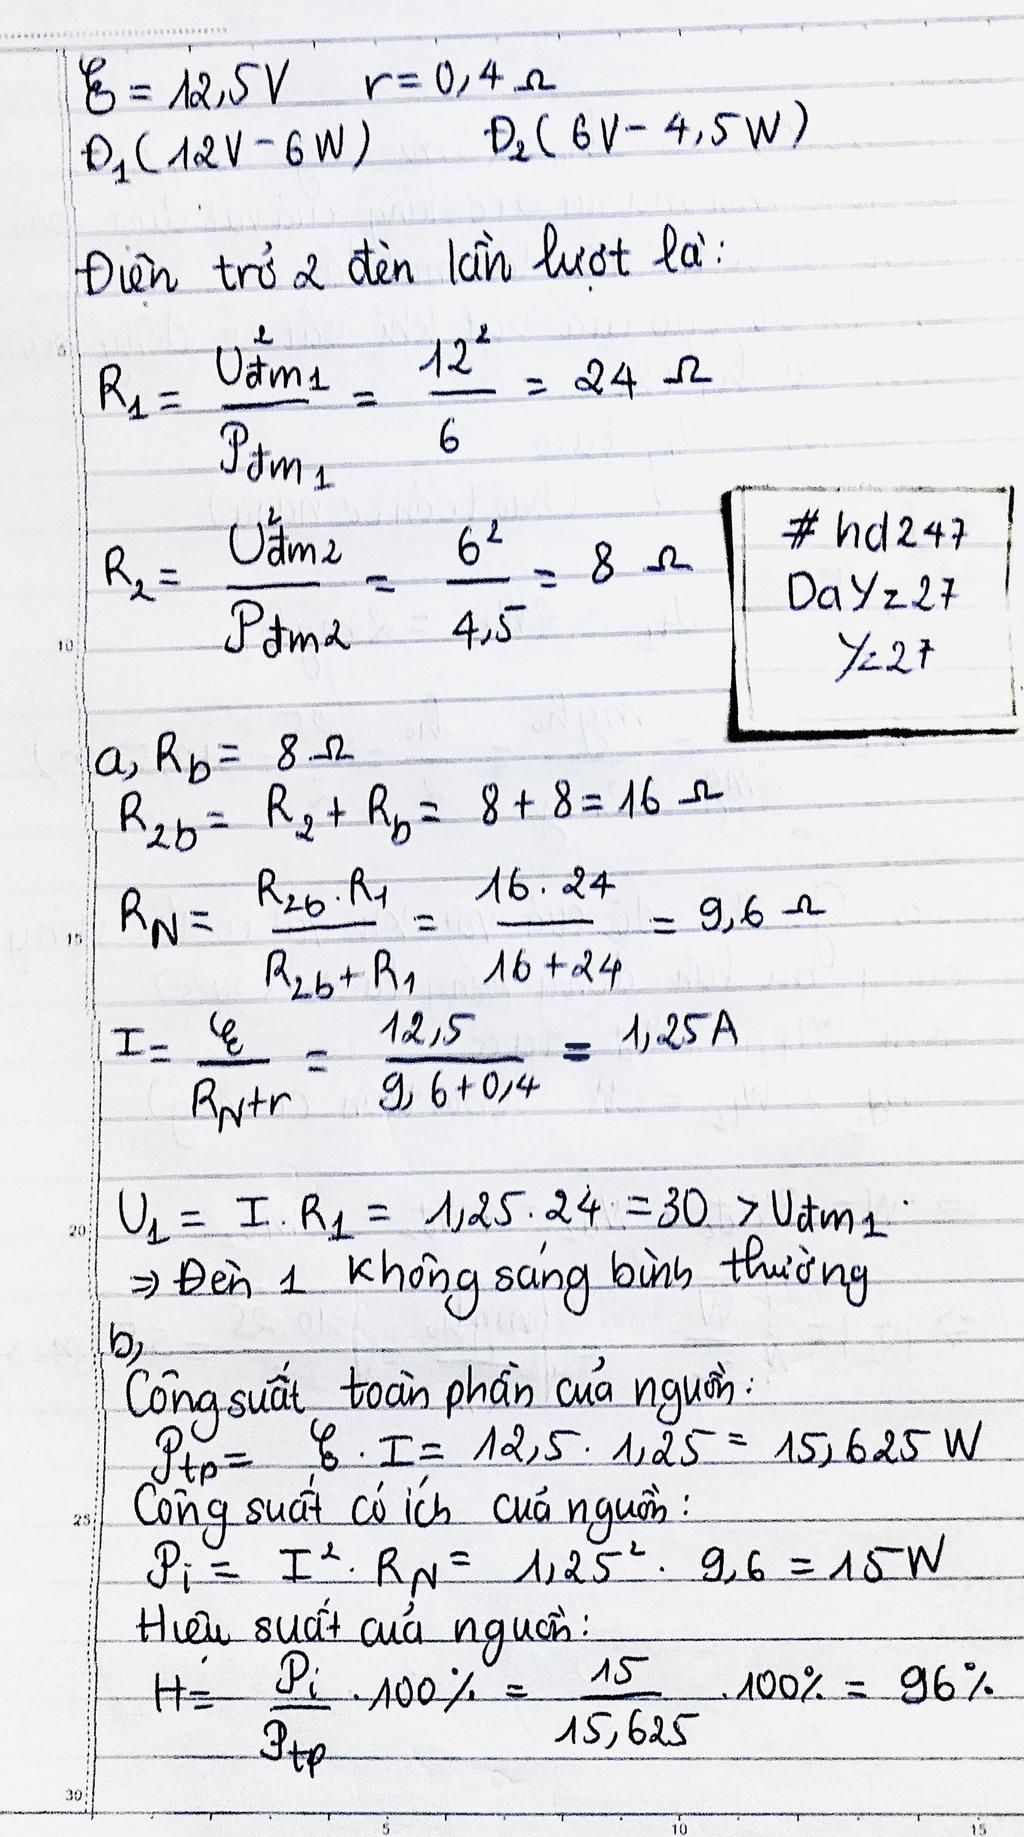 ℰ = 12,5V r = 0,4 Ω
Đ₁ ( 12V - 6W ) Đ₂ ( 6V - 4,5W )
Điện trở 2 đèn lần lượt là:
R₁ = U²đm1 / Pđm1 = 12² / 6 = 24 Ω
R₂ = U²đm2 / Pđm2 = 6² / 4,5 = 8 Ω
# hd247
DaYz27
Yz27
a, R_b = 8 Ω
R_2b = R₂ + R_b = 8 + 8 = 16 Ω
R_N = R_2b . R₁ / R_2b + R₁ = 16 . 24 / 16 + 24 = 9,6 Ω
I = ℰ / R_N + r = 12,5 / 9,6 + 0,4 = 1,25A
U₁ = I . R₁ = 1,25 . 24 = 30 > Uđm1
⇒ Đèn 1 không sáng bình thường
b,
Công suất toàn phần của nguồn:
P_tp = ℰ . I = 12,5 . 1,25 = 15,625 W
Công suất có ích của nguồn:
P_i = I² . R_N = 1,25² . 9,6 = 15 W
Hiệu suất của nguồn:
H = P_i / P_tp . 100% = 15 / 15,625 . 100% = 96%
5
10
15
20
25
30
5
10
15